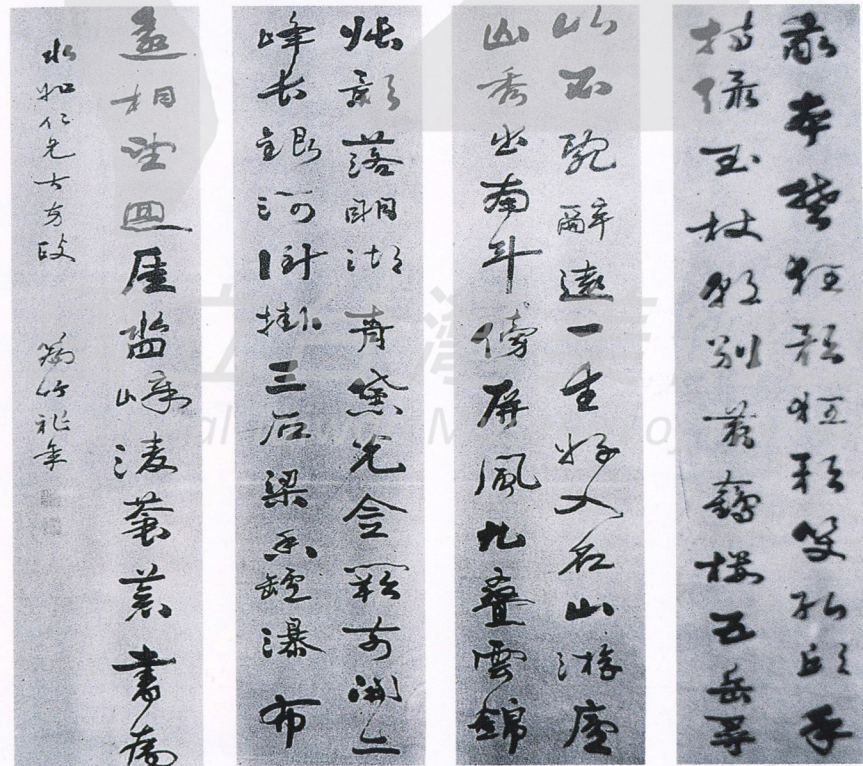 我本楚狂狂歌笑孔丘手
持綠玉杖朝別黃鶴樓五岳尋
不醉遠一生好入名山遊廬
山秀出南斗傍屏風九疊雲錦
張影落明湖青黛光金闕前開二
峰長銀河倒掛三石梁香爐瀑布
遙相望迴崖沓嶂凌蒼蒼書為
水如仁兄大方政
竹